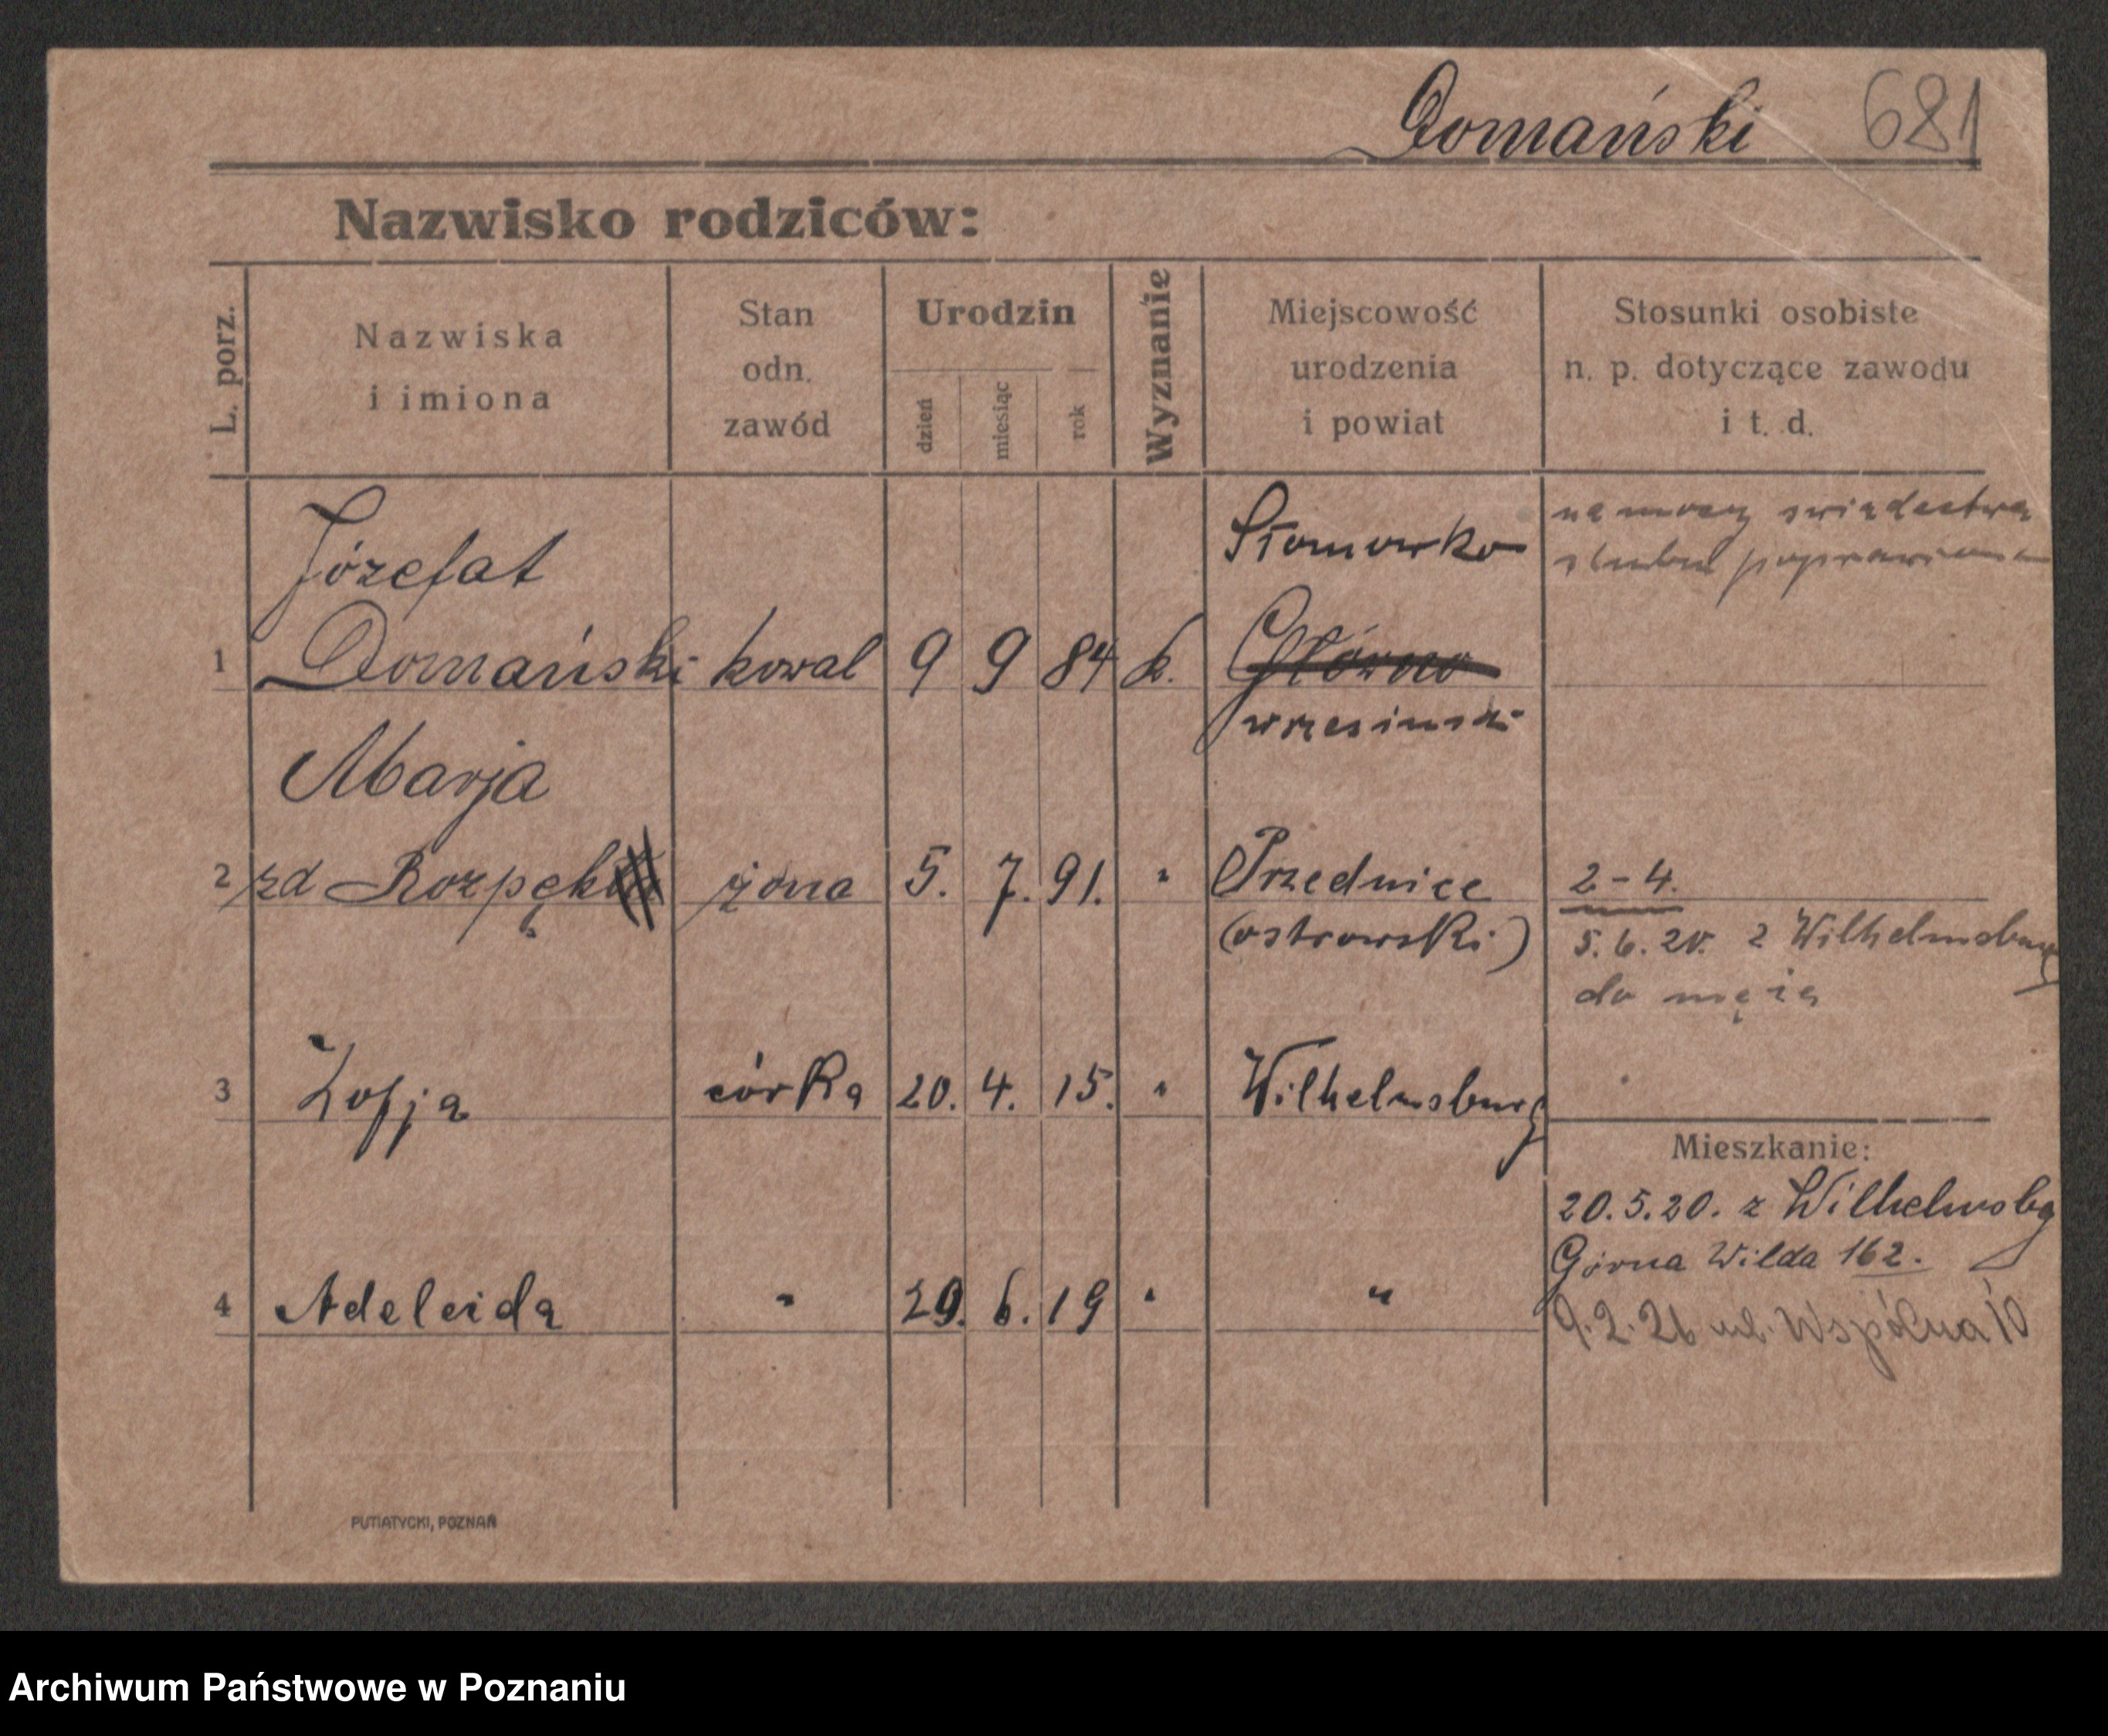 Domański 681
Nazwisko rodziców:
L. porz.
Nazwiska
i imiona
Stan
odn.
zawód
Urodzin
dzień
miesiąc
rok
Wyznanie
Miejscowość
urodzenia
i powiat
Stosunki osobiste
n. p. dotyczące zawodu
i t. d.
Józefat Słomowko na mocy świadectwa
ślubu poprawiono
1 Domański kowal 9 9 84 k. Główno
wrzesiński
Marja
2 zd Rozpęk żona 5. 7. 91. " Przednice 2-4.
(ostrowski) 5.6.20. z Wilhelmsburg
do męża
3 Zofja córka 20. 4. 15. " Wilhelmsburg
Mieszkanie:
20.5.20. z Wilhelmsbg
Górna Wilda 162.
4 Adeleida " 29. 6. 19 " " 9.2.26 ul. Wspólna 10
PUTIATYCKI, POZNAŃ
Archiwum Państwowe w Poznaniu